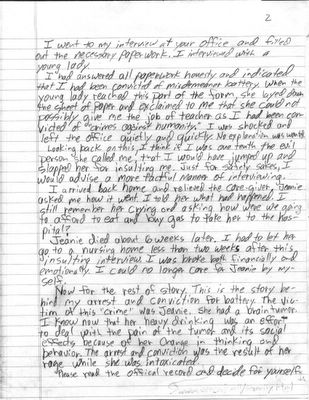 2
I went to my interview at your office and filled
out the necessary paperwork. I interviewed with a
young lady.
I had answered all paperwork honestly and indicated
that I had been convicted of misdemeanor battery. When the
young lady reached this part of the form, she layed down
the sheet of paper and exclaimed to me that she could not
possibly give me the job of teacher as I had been con-
victed of "crimes against humanity." I was shocked and
left the office quietly and quickly. No explanation was wanted.
Looking back on this, I think if I was one tenth the evil
person she called me, that I would have jumped up and
slapped her for insulting me. Just for safety sakes, I
would advise a more tactful manner of interviewing.
I arrived back home and relieved the care-giver. Jeanie
asked me how it went. I told her what had happened. I
still remember her crying and asking how were we going
to afford to eat and buy gas to take her to the hos-
pital?
Jeanie died about 6 weeks later. I had to let her
go to a nursing home less than two weeks after this
insulting interview. I was broke both financially and
emotionally. I could no longer care for Jeanie by my-
self.
Now for the rest of story. This is the story be-
hind my arrest and conviction for battery. The vic-
tim of this "crime" was Jeanie. She had a brain tumor.
I know now that her heavy drinking was an effort
to deal with the pain of the tumor and its social
effects because of her change in thinking and
behavior. The arrest and conviction was the result of her
rage while she was intoxicated.
Please read the official record and decide for yourself.